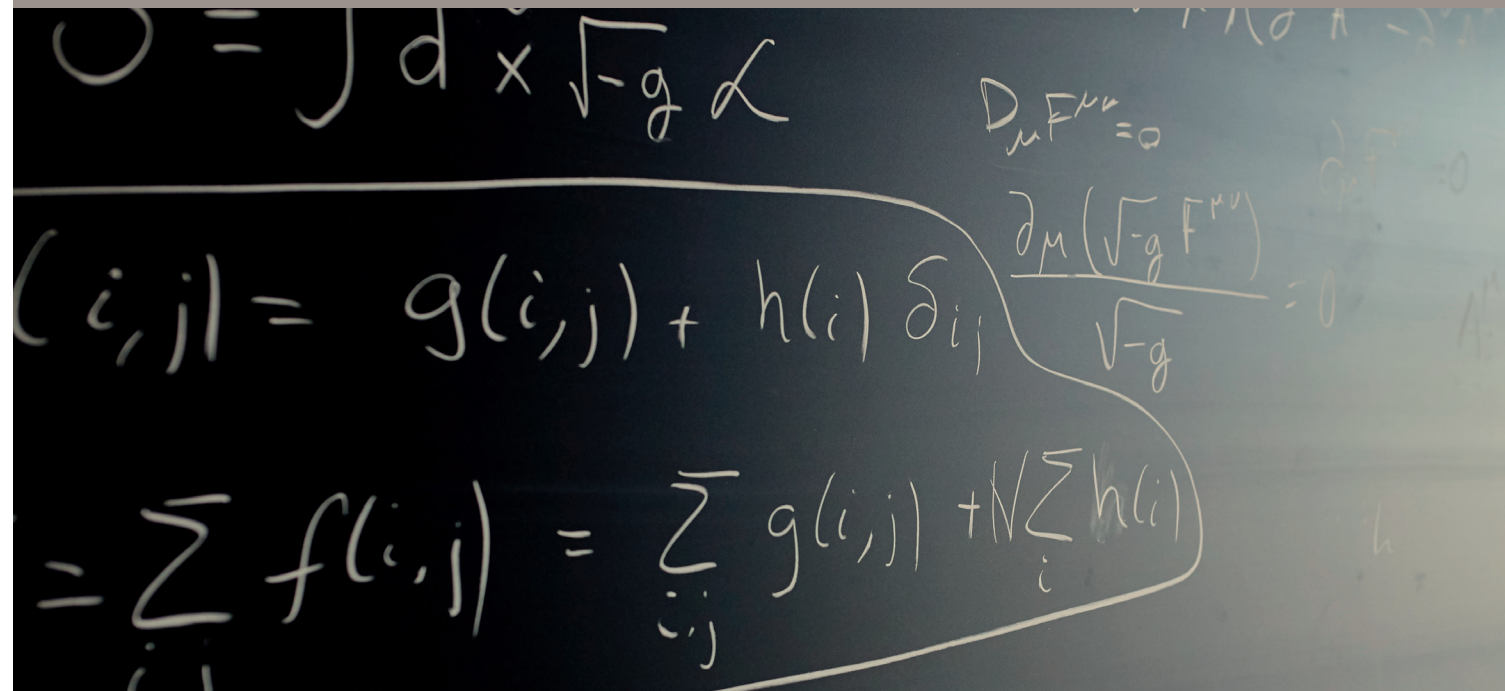 = ∫ d x √-g ℒ
D_μ F^{μν} = 0
∂_μ (√-g F^{μν}) / √-g = 0
(i,j) = g(i,j) + h(i) δ_{ij}
= Σ_{i,j} f(i,j) = Σ_{i,j} g(i,j) + N Σ_i h(i)